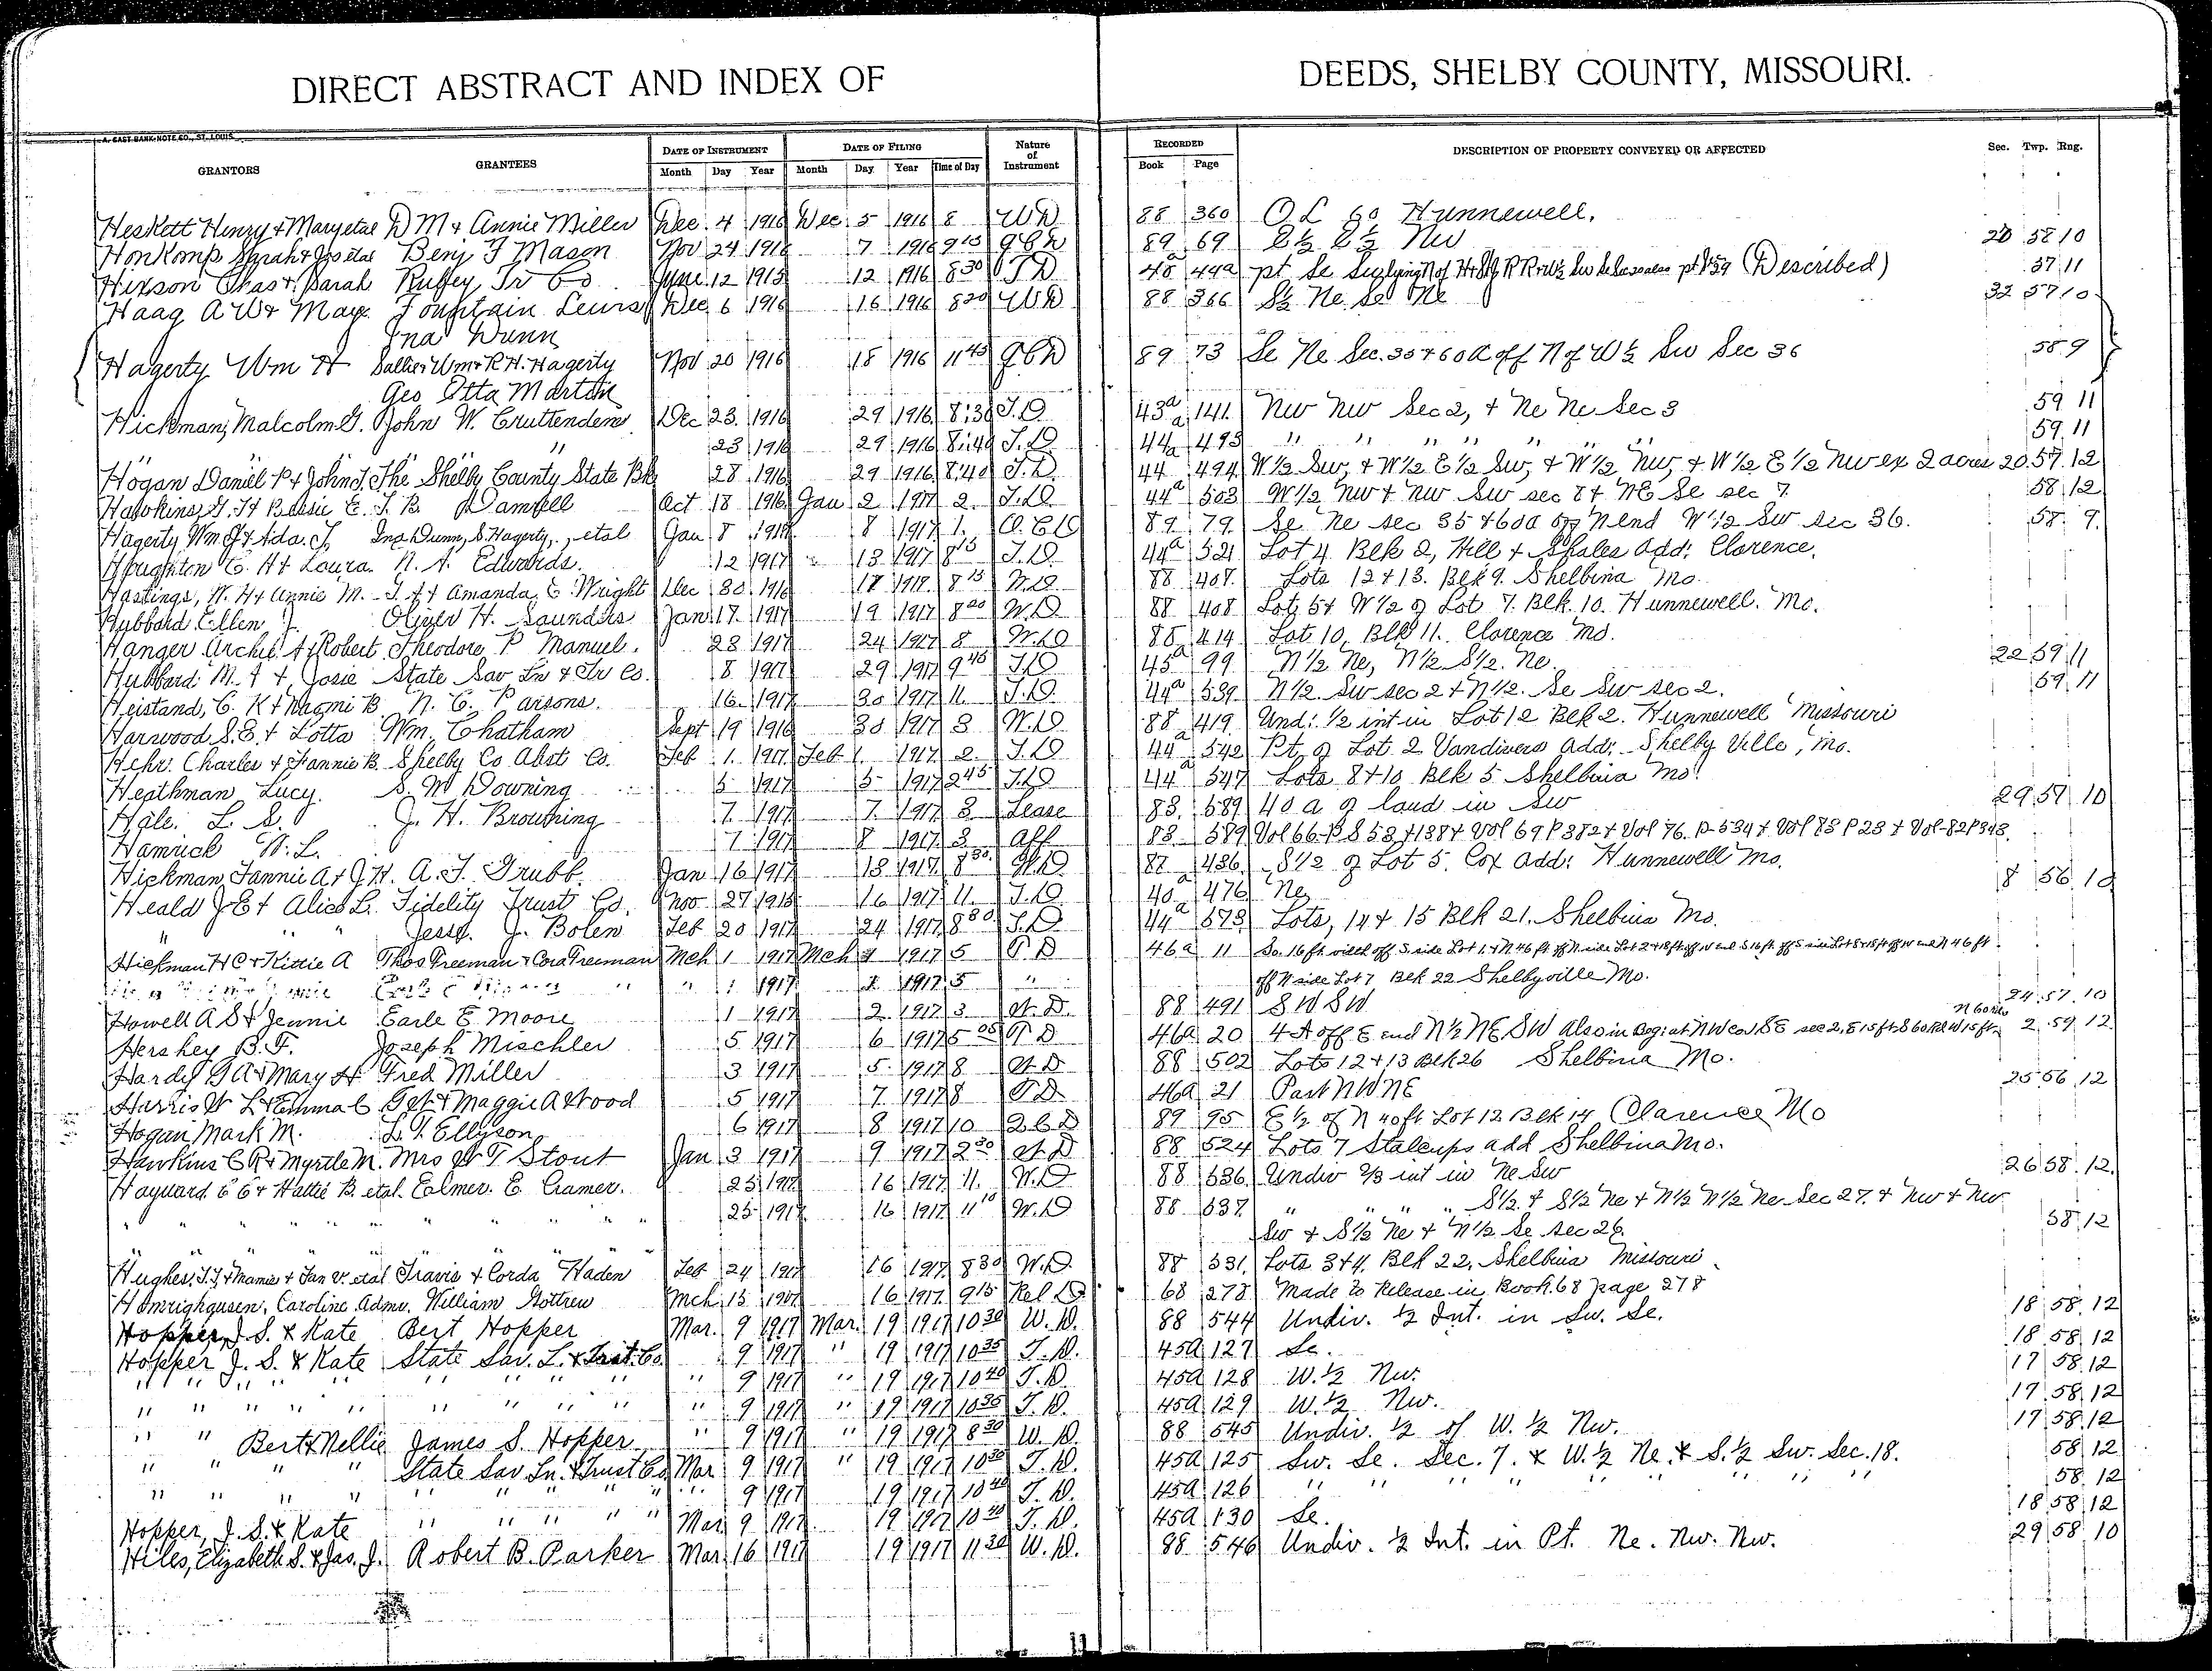 DIRECT ABSTRACT AND INDEX OF DEEDS, SHELBY COUNTY, MISSOURI.
A. EAST BANK-NOTE CO., ST. LOUIS
GRANTORS GRANTEES DATE OF INSTRUMENT DATE OF FILING Nature of Instrument RECORDED DESCRIPTION OF PROPERTY CONVEYED OR AFFECTED Sec. Twp. Rng.
Month Day Year Month Day Year Time of Day Book Page
Heskett Henry & Mary etal D M & Annie Miller Dec. 4 1916 Dec 5 1916 8 WD 88 360 O L 60 Hunnewell.
HonKomp Sarah & Jos etal Benj F Mason Nov 24 1916 7 1916 9 15 QCD 89 69 E½ E½ Nw 20 58 10
Hixson Chas & Sarah Ruffey Tr Co June 12 1915 12 1916 8 30 TD 449 pt Se Sw lying N of H & St J R R (Described) 57 11
Haag A W & May Fountain Lewis Dec. 6 1916 16 1916 8 20 WD 88 366 S½ Ne Se Ne 32 57 10
Ina Dunn
Hagerty Wm H Sallie Wm & R.H. Hagerty Nov 20 1916 18 1916 11 45 QCD 89 73 Se Ne Sec. 35 & 60 a off N of W½ Sw Sec 36 58 9
Geo Otta Martin
Hickman, Malcolm G. John W. Cruttenden Dec 23. 1916 29 1916 8:30 T.D. 43a 141 Nw Nw Sec 2, & Ne Ne Sec 3 59 11
" " 23 1916 29 1916 8:40 T.D. 44a 493 " " " " " " 59 11
Hogan Daniel P & John J. The Shelby County State Bk 28 1916 29 1916 8:40 T.D. 44 494 W½ Sw, & W½ E½ Sw, & W½ Nw, & W½ E½ Nw ex 2 acres 20 57 12
Hawkins, G. H Bessie E. J. B. Damrell Oct 18 1916 Jan 2 1917 2 T.D 44a 503 W½ Nw & Nw Sw sec 8 & NE Se sec 7 58 12
Hagerty Wm J & Ada. J. Ina Dunn, S. Hagerty, etal Jan 8 1917 8 1917 1. Q.C.D 89 79 Se Ne sec 35 & 60a off N end W½ Sw Sec 36. 58 9
Houghton C. H & Laura. N. A. Edwards. 12 1917 " 13 1917 8 15 T.D. 44a 521 Lot 4 Blk 2, Hill & Shales Add: Clarence.
Hastings, W. H & Annie M. J. A & Amanda C Wright Dec 30 1916 17 1917 8 15 W.D. 88 407 Lots 12 & 13. Blk 9. Shelbina Mo.
Hubbard Ellen J Oliver H. Saunders Jan 17 1917 19 1917 8 20 W.D 88 408 Lot 5 & W½ of Lot 7. Blk. 10. Hunnewell. Mo.
Hanger Archie A & Robert Theodore P Manuel. 23 1917 24 1917 8 W.D 88 414 Lot 10, Blk 11. Clarence Mo.
Hubbard M. F & Josie State Sav Ln & Tr Co. 8 1917 29 1917 9 45 T.D 45a 99 N½ Ne, N½ S½ Ne. 22 59 11
Heistand, C. K & Naomi B N. C. Parsons. 16 1917 30 1917 11 T.D. 44a 539 N½ Sw sec 2 & N½ Se Sw sec 2. 59 11
Harwood S.E. & Lotta Wm. Chatham Sept 19 1916 30 1917 3 W.D 88 419 Und: ½ int in Lot 12 Blk 2. Hunnewell Missouri
Hehr. Charles & Fannie B Shelby Co Abst Co. Feb 1. 1917 Feb 1 1917 2 T.D 44a 542 Pt of Lot 2 Vandivers Add: Shelby Ville, Mo.
Heathman Lucy. S. M Downing 5 1917 5 1917 2 45 T.D 44a 547 Lots 8 & 10 Blk 5 Shelbina Mo.
Hale. L. S. J. H. Browning 7 1917 7 1917 3 Lease 83 589 40 a of land in Sw 29 57 10
Hamrick W. L. 7 1917 8 1917 3 Aff 83 589 Vol 66 P S 53 & 138 & Vol 69 P 382 & Vol 76. P 534 & Vol 83 P 23 & Vol-82 P 343.
Hickman, Fannie A & J. H. A. T. Grubb. Jan 16 1917 13 1917 8 30 W.D 87 436 S½ of Lot 5. Cox Add: Hunnewell Mo.
Heald J E & Alice L. Fidelity Trust Co. Nov 27 1915 16 1917 11. T.D 40a 476 Ne 8 56 10
" " " Jesse J. Bolen Feb 20 1917 24 1917 8 30 T.D. 44a 573 Lots, 14 & 15 Blk 21. Shelbina Mo.
Hickman H C & Kittie A Thos Freeman & Cora Freeman Mch 1 1917 Mch 1 1917 5 T D 46a 11 So. 16 ft width off S side Lot 1 & N 46 ft off N side Lot 2
" 1 1917 1 1917 5 " off N side Lot 7 Blk 22 Shelbyville Mo.
Howell A S & Jennie Earle E Moore 1 1917 2 1917 3 W. D. 88 491 SW SW 24 57 10
Hershey B. F. Joseph Mischler 5 1917 6 1917 5 05 T D 46a 20 4 A off E end N½ NE SW also in Beg: at NW cor SE sec 2, E 15 ft S 60 Rd W 15 ft N 60 Rds 2 59 12
Hardy G A & Mary H Fred Miller 3 1917 5 1917 8 W D 88 502 Lots 12 & 13 Blk 26 Shelbina Mo.
Harris W L & Emma C Maggie A Wood 5 1917 7 1917 8 T.D 46a 21 Part NW NE 25 56 12
Hogan Mark M. L. T. Ellyson 6 1917 8 1917 10 Q C D 89 95 E½ of N 40 ft Lot 12 Blk 14 Clarence Mo
Hawkins C R & Myrtle M. Mrs W T Stout Jan 3 1917 9 1917 2 30 W D 88 524 Lots 7 Stalcups add Shelbina Mo.
Hayward E E & Hattie B. etal. Ealmer. E. Cramer. 25 1917 16 1917 11. W.D 88 536 Undiv 2/3 int in Ne Sw 26 58 12
" " " " " " " " 25 1917 16 1917 11 10 W.D 88 537 " " " " S½ & S½ Ne & N½ N½ Ne Sec 27. & Nw & Nw
Sw & S½ Ne & N½ Se sec 26. 58 12
Hughes, T.J. & Mamie & Jan V. etal Travis & Corda Haden Feb 24 1917 16 1917 8 30 W.D 88 531 Lots 3 & 4. Blk 22, Shelbina Missouri
Homrighausen, Caroline Admr. William Gottrew Mch 15 1907 16 1917 9 15 Rel D 68 278 Made to Release in Book 68 page 278
Hopper, J. S. & Kate Bert Hopper Mar. 9 1917 Mar. 19 1917 10 30 W. D. 88 544 Undiv. ½ Int. in Sw. Se. 18 58 12
Hopper J. S. & Kate State Sav. L. & Trust. Co. " 9 1917 " 19 1917 10 35 T. D. 45a 127 Se. 18 58 12
" " " " " " " " " 9 1917 " 19 1917 10 40 T. D. 45a 128 W. ½ Nw. 17 58 12
" " " " " " " " " 9 1917 " 19 1917 10 35 T. D. 45a 129 W. ½ Nw. 17 58 12
" " Bert & Nellie James S. Hopper " 9 1917 " 19 1917 8 30 W. D. 88 545 Undiv. ½ of W. ½ Nw. 17 58 12
" " " " State Sav. Ln. & Trust Co Mar 9 1917 " 19 1917 10 35 T. D. 45a 125 Sw. Se. Sec. 7. & W. ½ Ne. & S. ½ Sw. Sec. 18. 58 12
" " " " " " " " " 9 1917 19 1917 10 40 T. D. 45a 126 " " " " " " " 58 12
Hopper, J. S. & Kate " " " " " Mar 9 1917 19 1917 10 40 T. D. 45a 130 Se. 18 58 12
Hiles, Elizabeth S. & Jas. J. Robert B. Parker Mar. 16 1917 19 1917 11 30 W. D. 88 546 Undiv. ½ Int. in Pt. Ne. Nw. Nw. 29 58 10